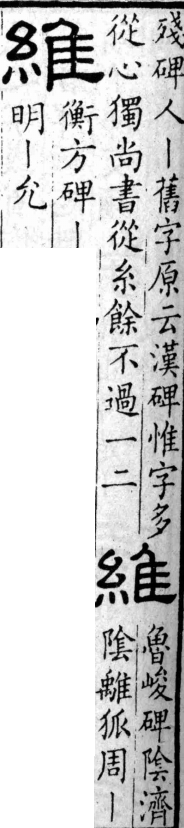 殘碑人丨舊字原云漢碑惟字多
從心獨尚書從糸餘不過一二
維
魯峻碑陰濟
陰離狐周丨
維
衡方碑丨
明丨允